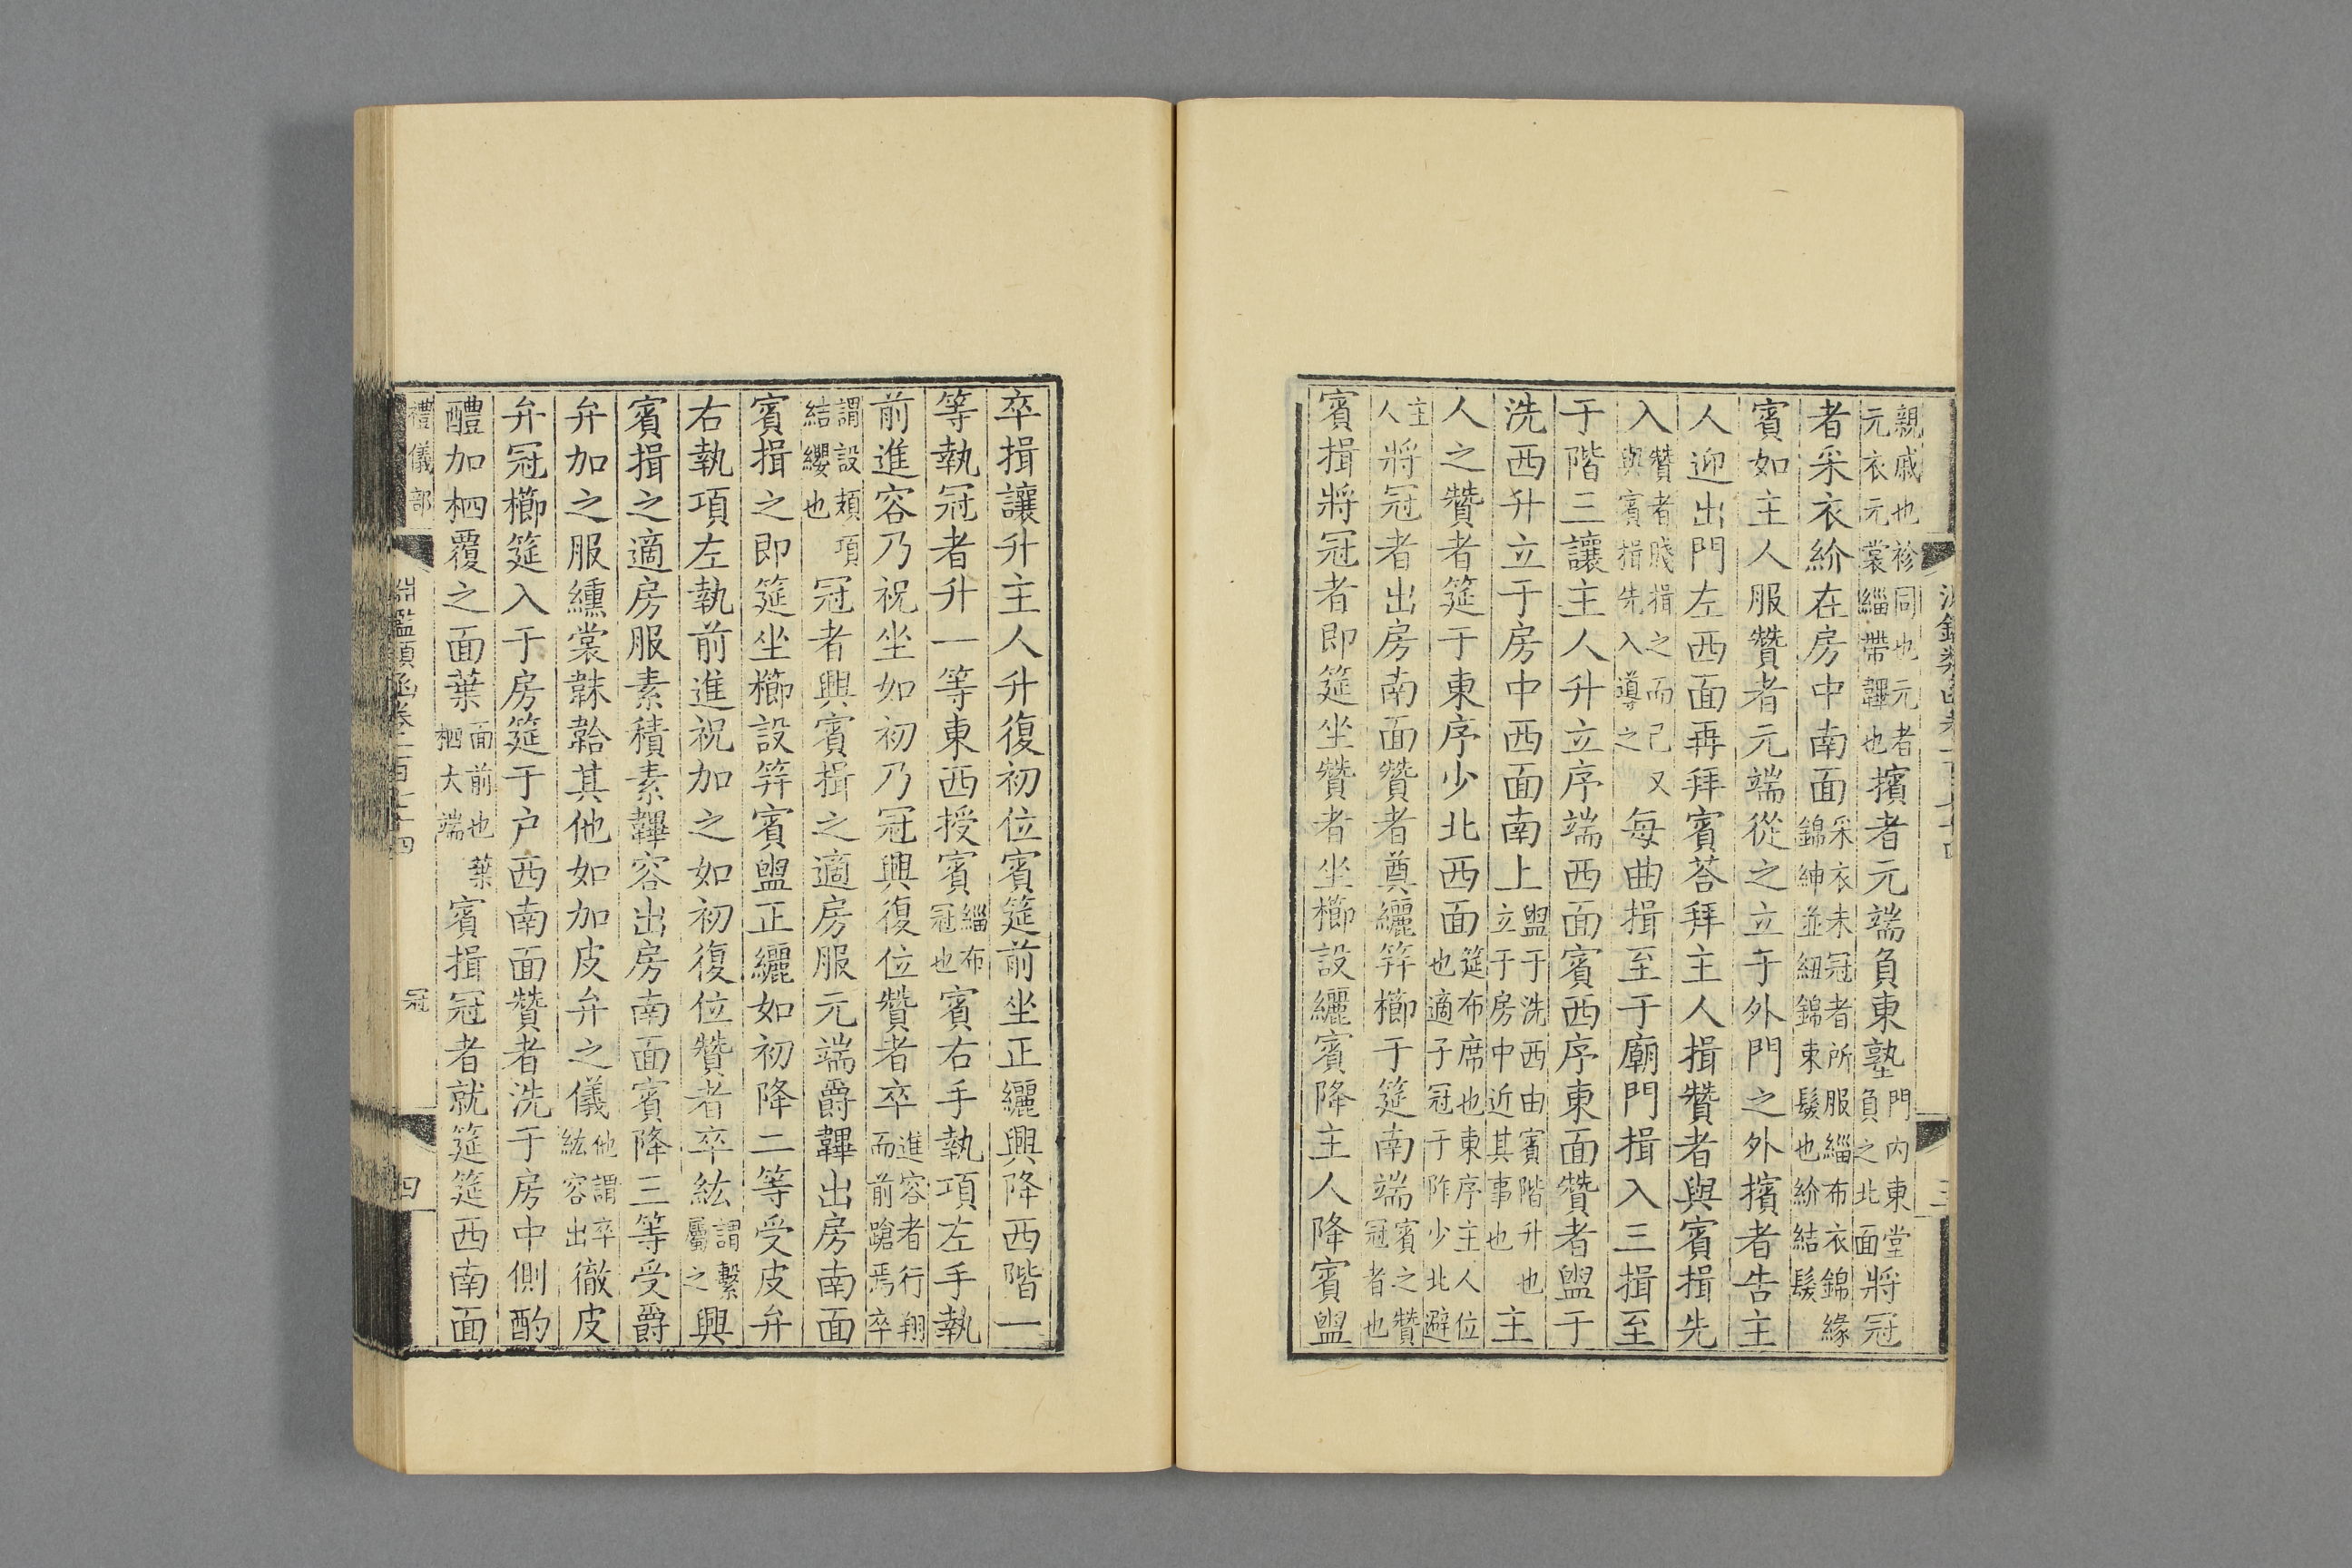 親戚也袗同也元者元衣元裳緇帶韠也擯者元端負東塾門內東堂負之北面將冠
者采衣紒在房中南面采衣未冠者所服緇布衣錦緣錦紳並紐錦束髮也紒結髮
賓如主人服贊者元端從之立于外門之外擯者告主
人迎出門左西面再拜賓荅拜主人揖贊者與賓揖先
入贊者賤揖之而己又與賓揖先入導之每曲揖至于廟門揖入三揖至
于階三讓主人升立序端西面賓西序東面贊者盥于
洗西升立于房中西面南上盥于洗西由賓階升也立于房中近其事也主
人之贊者筵于東序少北西面筵布席也東序主人位也適子冠于阼少北避
主人將冠者出房南面贊者奠纚筓櫛于筵南端賓之贊冠者也
賓揖將冠者即筵坐贊者坐櫛設纚賓降主人降賓盥
卒揖讓升主人升復初位賓筵前坐正纚興降西階一
等執冠者升一等東西授賓緇布冠也賓右手執項左手執
前進容乃祝坐如初乃冠興復位贊者卒進容者行翔而前蹌焉卒
謂設頍項結纓也冠者興賓揖之適房服元端爵韠出房南面
賓揖之即筵坐櫛設筓賓盥正纚如初降二等受皮弁
右執項左執前進祝加之如初復位贊者卒紘謂繫屬之興
賓揖之適房服素積素韠容出房南面賓降三等受爵
弁加之服纁裳韎韐其他如加皮弁之儀他謂卒紘容出徹皮
弁冠櫛筵入于房筵于戶西南面贊者洗于房中側酌
醴加柶覆之面葉面前也葉柶大端賓揖冠者就筵筵西南面
禮儀部 淵鑑類函卷一百七十四 冠 四